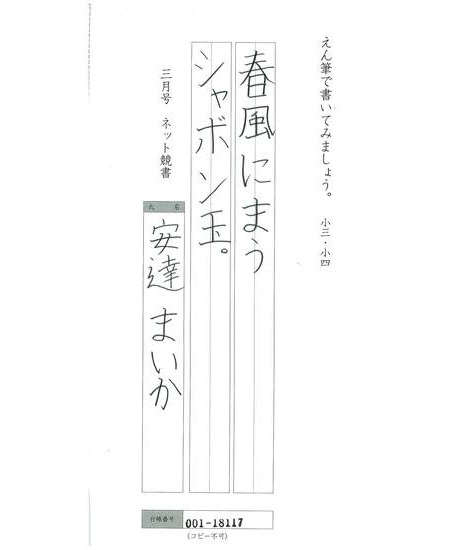 えん筆で書いてみましょう。 小三・小四
春風にまう
シャボン玉。
三月号 ネット競書
氏名
安達 まいか
台帳番号 001-18117
(コピー不可)